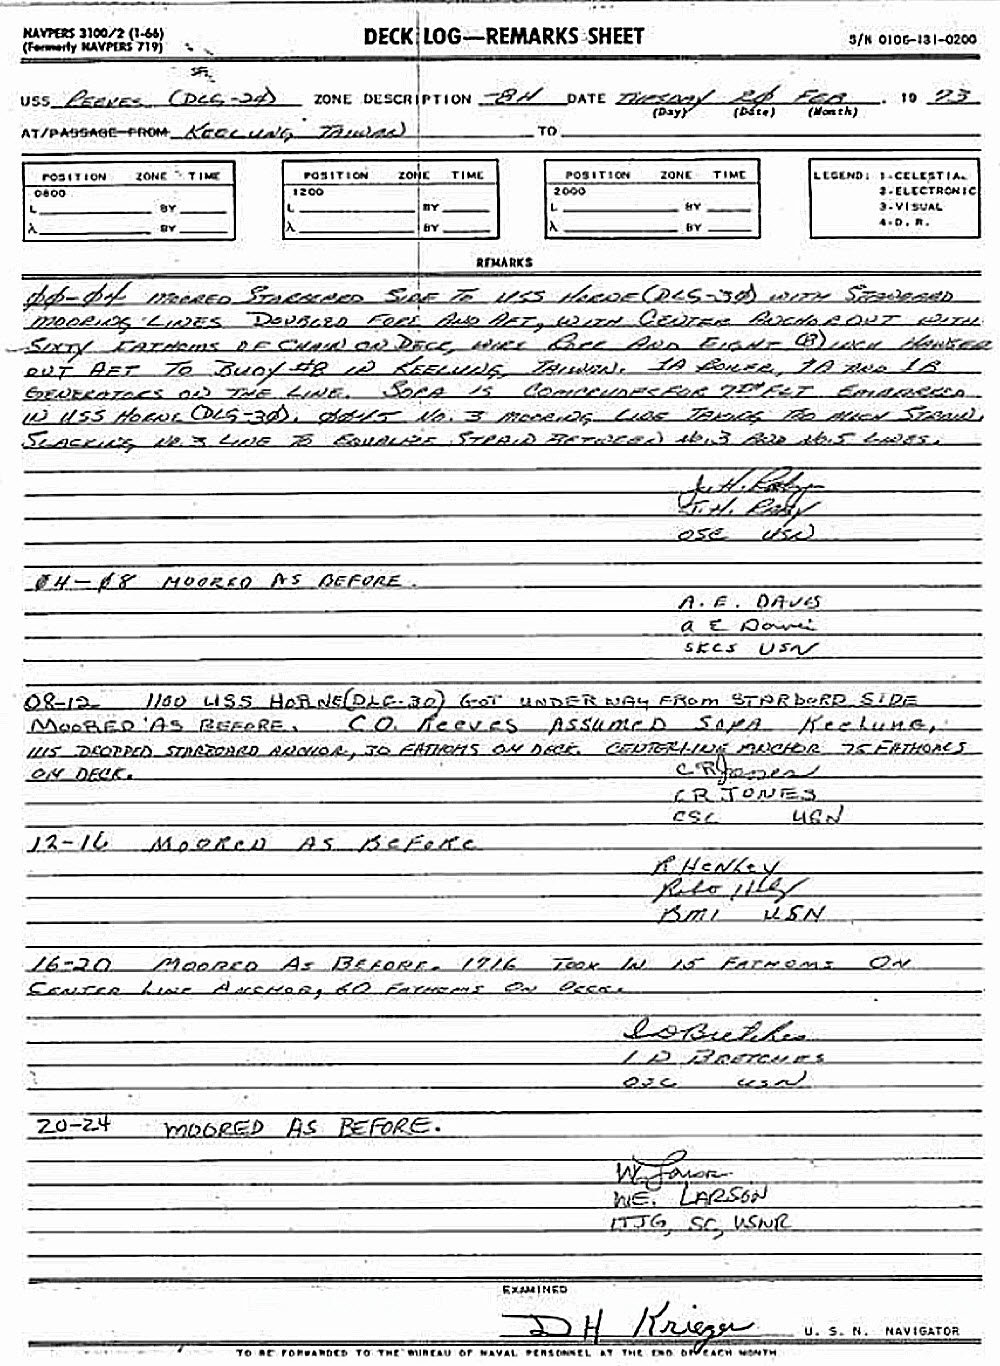 NAVPERS 3100/2 (1-66)
(Formerly NAVPERS 719)
DECK LOG—REMARKS SHEET
S/N 0106-131-0200
USS REEVES (DLG-24) ZONE DESCRIPTION -8H DATE TUESDAY 20 FEB . 19 73
(Day) (Date) (Month)
AT/PASSAGE FROM KEELUNG TAIWAN TO
POSITION ZONE TIME
0800
L BY
λ BY
POSITION ZONE TIME
1200
L BY
λ BY
POSITION ZONE TIME
2000
L BY
λ BY
LEGEND: 1-CELESTIAL
2-ELECTRONIC
3-VISUAL
4-D. R.
REMARKS
00-04 MOORED STARBOARD SIDE TO USS HORNE (DLG-30) WITH STANDARD
MOORING LINES DOUBLED FORE AND AFT, WITH CENTER ANCHOR OUT WITH
SIXTY FATHOMS OF CHAIN ON DECK, WIRE AND EIGHT (8) INCH HAWSER
OUT AFT TO BUOY #8 IN KEELUNG, TAIWAN. 1A BOILER, 1A AND 1B
GENERATORS ON THE LINE. SOPA IS COMCRUDESFOR 7TH FLT EMBARKED
IN USS HORNE (DLG-30). 0045 NO. 3 MOORING LINE TAKING TOO MUCH STRAIN,
SLACKING NO. 3 LINE TO EQUALIZE STRAIN BETWEEN NO. 3 AND NO. 5 LINES.
J. H.
J. H.
OSC USN
04-08 MOORED AS BEFORE.
A. E. DAVIS
A E Davis
SKCS USN
08-12 1100 USS HORNE (DLG-30) GOT UNDERWAY FROM STARBORD SIDE
MOORED AS BEFORE. C.O. REEVES ASSUMED SOPA KEELUNG,
1115 DROPPED STARBOARD ANCHOR, 30 FATHOMS ON DECK. CENTERLINE ANCHOR 75 FATHOMS
ON DECK.
C R Jones
C R JONES
CSC USN
12-16 MOORED AS BEFORE
R HENLEY
BM1 USN
16-20 MOORED AS BEFORE. 1716 TOOK IN 15 FATHOMS ON
CENTER LINE ANCHOR, 60 FATHOMS ON DECK.
I D BRETCHES
OSC USN
20-24 MOORED AS BEFORE.
W. Larson
W.E. LARSON
LTJG, SC, USNR
EXAMINED
D H Krieger U. S. N. NAVIGATOR
TO BE FORWARDED TO THE BUREAU OF NAVAL PERSONNEL AT THE END OF EACH MONTH